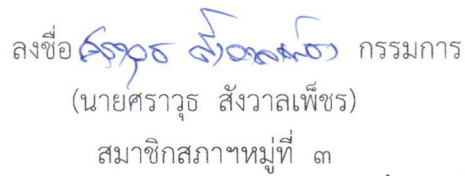 ลงชื่อ ศราวุธ สังวาลเพ็ชร กรรมการ
(นายศราวุธ สังวาลเพ็ชร)
สมาชิกสภาฯหมู่ที่ ๓